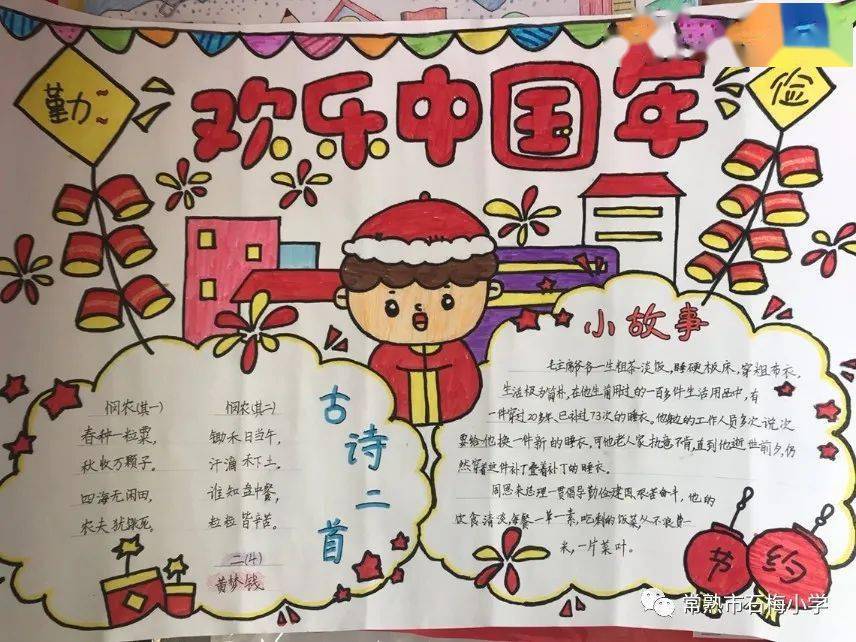 欢乐中国年
勤
俭
悯农(其一)
春种一粒粟,
秋收万颗子。
四海无闲田,
农夫犹饿死。
悯农(其二)
锄禾日当午,
汗滴禾下土。
谁知盘中餐,
粒粒皆辛苦。
二(4)
黄梦钱
古诗二首
小故事
毛主席爷爷一生粗茶淡饭,睡硬板床,穿粗布衣,
生活极为简朴,在他生前用过的一百多件生活用品中,有
一件穿过20多年、已补过73次的睡衣。他的工作人员多次说次
要给他换一件新的睡衣,可他老人家执意不肯,直到他逝世前夕,仍
然穿着这件补丁叠着补丁的睡衣。
周恩来总理一贯倡导勤俭建国,艰苦奋斗,他的
饮食清淡,每餐一荤一素,吃剩的饭菜从不浪费一
米,一片菜叶。
节约
常熟市石梅小学